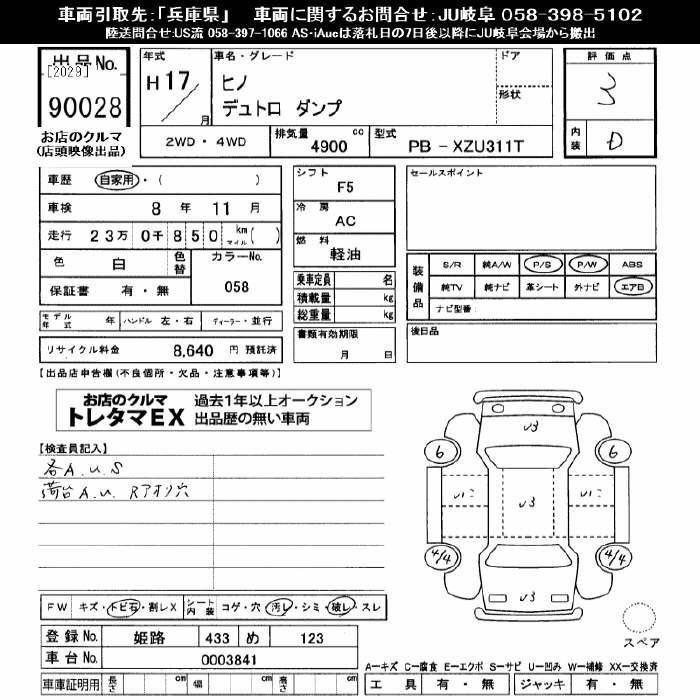 車両引取先:「兵庫県」 車両に関するお問合せ:JU岐阜 058-398-5102
陸送問合せ:US流 058-397-1066 AS-iAucは落札日の7日後以降にJU岐阜会場から搬出
出品No.
[2029]
90028
お店のクルマ
(店頭映像出品)
年式
H17/月
車名・グレード
ヒノ
デュトロ ダンプ
ドア
形状
評価点
3
内装
D
2WD・4WD
排気量 4900 cc
型式 PB-XZU311T
車歴 自家用・( )
車検 8年 11月
走行 23万 0千 850 km マイル ( )
色 白 色替
カラーNo. 058
保証書 有・無
シフト F5
冷房 AC
燃料 軽油
乗車定員 名
積載量 kg
総重量 kg
セールスポイント
装備品
S/R 純A/W P/S P/W ABS
純TV 純ナビ 革シート 外ナビ エアB
ナビ型番:
モデル年式 年 ハンドル 左・右 ディーラー・並行
書類有効期限
月 日
後日品
リサイクル料金 8,640 円 預託済
【出品店申告欄(不良個所・欠品・注意事項等)】
お店のクルマ
トレタマEX
過去1年以上オークション
出品歴の無い車両
【検査員記入】
各A.U.S
荷台A.U. Rアオリ穴
U3
6 6
U12 U3 U12
4/4 4/4
U3
スペア
FW キズ・トビ石・割レX
シート内装 コゲ・穴・汚レ・シミ・破レ・スレ
登録No. 姫路 433 め 123
車台No. 0003841
車庫証明用 長さ cm 幅 cm 高さ cm
A—キズ C—腐食 E—エクボ S—サビ U—凹み W—補修 XX—交換済
工具 有・無 ジャッキ 有・無